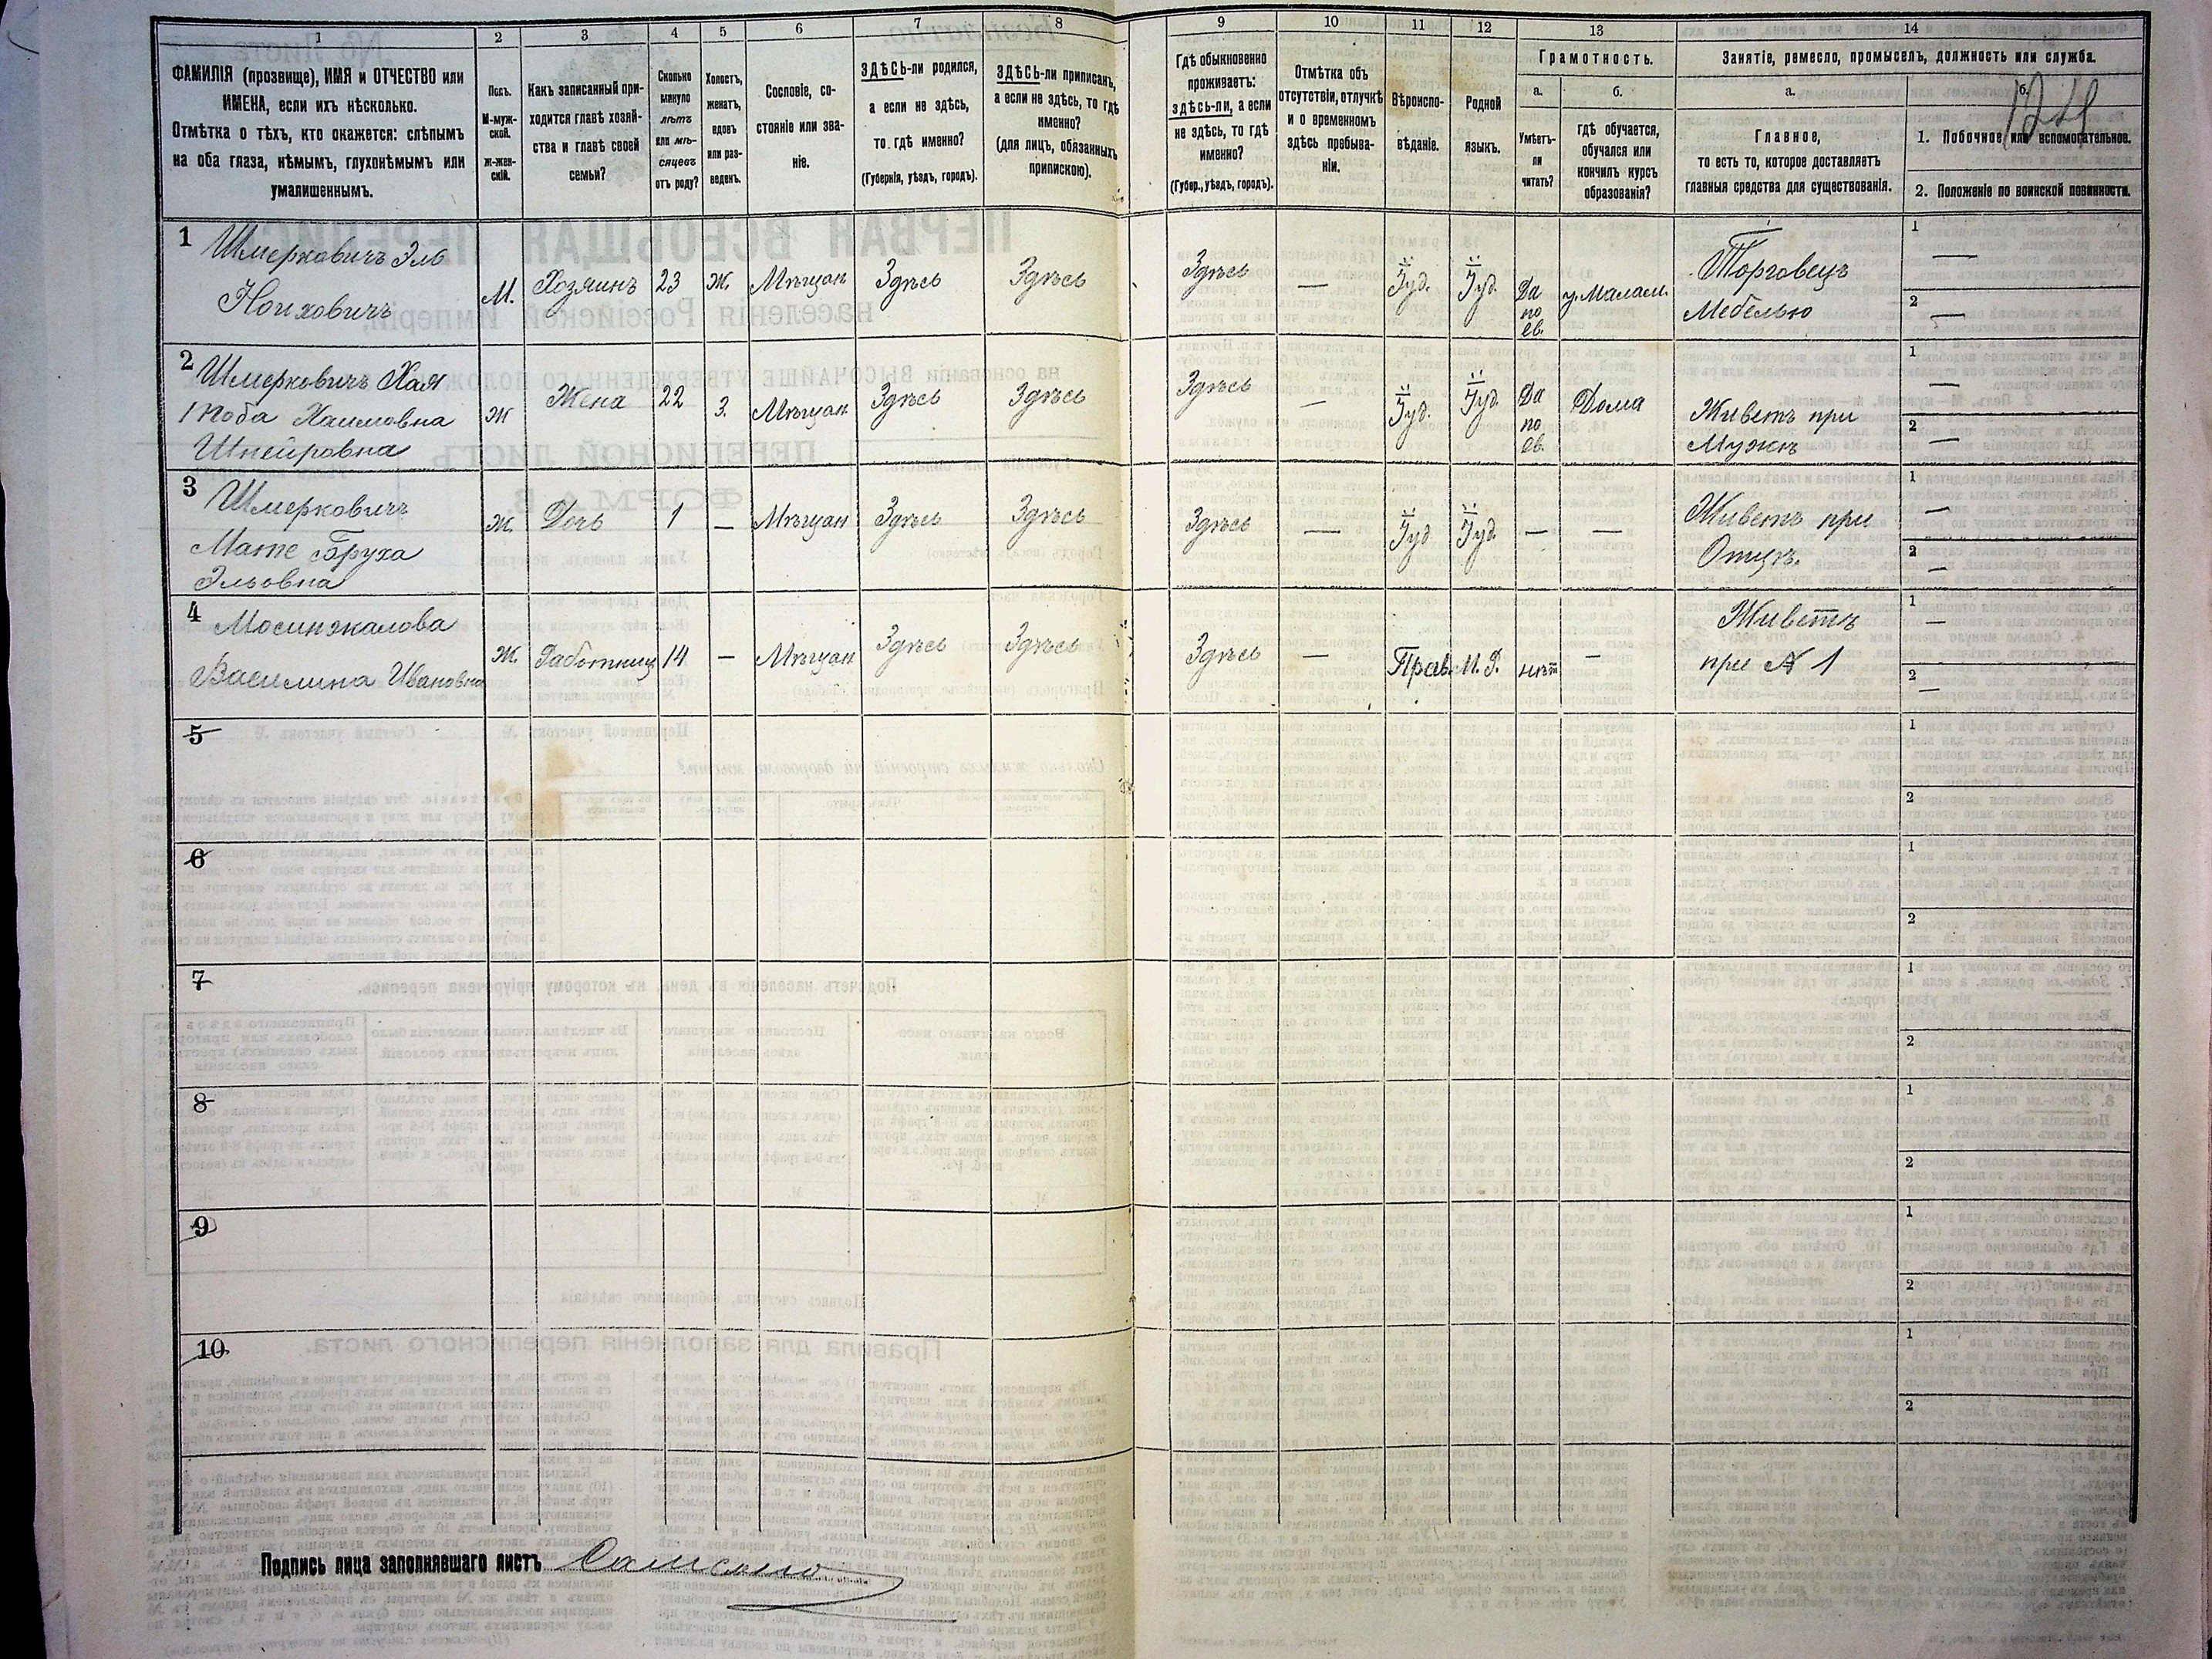 1 2 3 4 5 6 7 8 9 10 11 12 13 14
ФАМИЛІЯ (прозвище), ИМЯ и ОТЧЕСТВО или
ИМЕНА, если ихъ нѣсколько.
Отмѣтка о тѣхъ, кто окажется: слѣпымъ
на оба глаза, нѣмымъ, глухонѣмымъ или
умалишеннымъ.
Полъ.
М-муж-
ской.
ж-жен-
скій.
Какъ записанный при-
ходится главѣ хозяй-
ства и главѣ своей
семьи?
Сколько
минуло
лѣтъ
или мѣ-
сяцевъ
отъ роду?
Холостъ,
женатъ,
вдовъ
или раз-
веденъ.
Сословіе, со-
стояніе или зва-
ніе.
ЗДѢСЬ-ли родился,
а если не здѣсь,
то гдѣ именно?
(Губернія, уѣздъ, городъ).
ЗДѢСЬ-ли приписанъ,
а если не здѣсь, то гдѣ
именно?
(для лицъ, обязанныхъ
припискою).
Гдѣ обыкновенно
проживаетъ:
здѣсь-ли, а если
не здѣсь, то гдѣ
именно?
(Губер., уѣздъ, городъ).
Отмѣтка объ
отсутствіи, отлучкѣ
и о временномъ
здѣсь пребыва-
ніи.
Вѣроиспо-
вѣданіе.
Родной
языкъ.
Грамотность.
а.
Умѣетъ-
ли
читать?
б.
гдѣ обучается,
обучался или
кончилъ курсъ
образованія?
Занятіе, ремесло, промыселъ, должность или служба.
а.
Главное,
то есть то, которое доставляетъ
главныя средства для существованія.
б.
1. Побочное или вспомогательное.
2. Положеніе по воинской повинности.
1 Шмерковичъ Эль
Ноиховичъ
М. Хозяинъ 23 Ж. Мѣщан Здѣсь Здѣсь Здѣсь — Іуд. Іуд. Да
по
ев.
у. Малам.
Торговецъ
Мебелью
1 —
2 —
2 Шмерковичъ Хая
Тоба Хаимовна
Шнейровна
Ж Жена 22 З. Мѣщан Здѣсь Здѣсь Здѣсь — Іуд. Іуд. Да
по
ев.
Дома
Живетъ при
Мужѣ
1 —
2 —
3 Шмерковичъ
Мате Бруха
Эльовна
Ж. Дочь 1 — Мѣщан Здѣсь Здѣсь Здѣсь — Іуд Іуд. — —
Живетъ при
Отцѣ.
1 —
2 —
4 Мосинжалова
Василина Ивановна
Ж. Работниц 14 — Мѣщан Здѣсь Здѣсь Здѣсь — Прав. М. Р. нѣт —
Живетъ
при № 1
1 —
2 —
5 1
2
6 1
2
7 1
2
8 1
2
9 1
2
10 1
2
Подпись лица заполнявшаго листъ